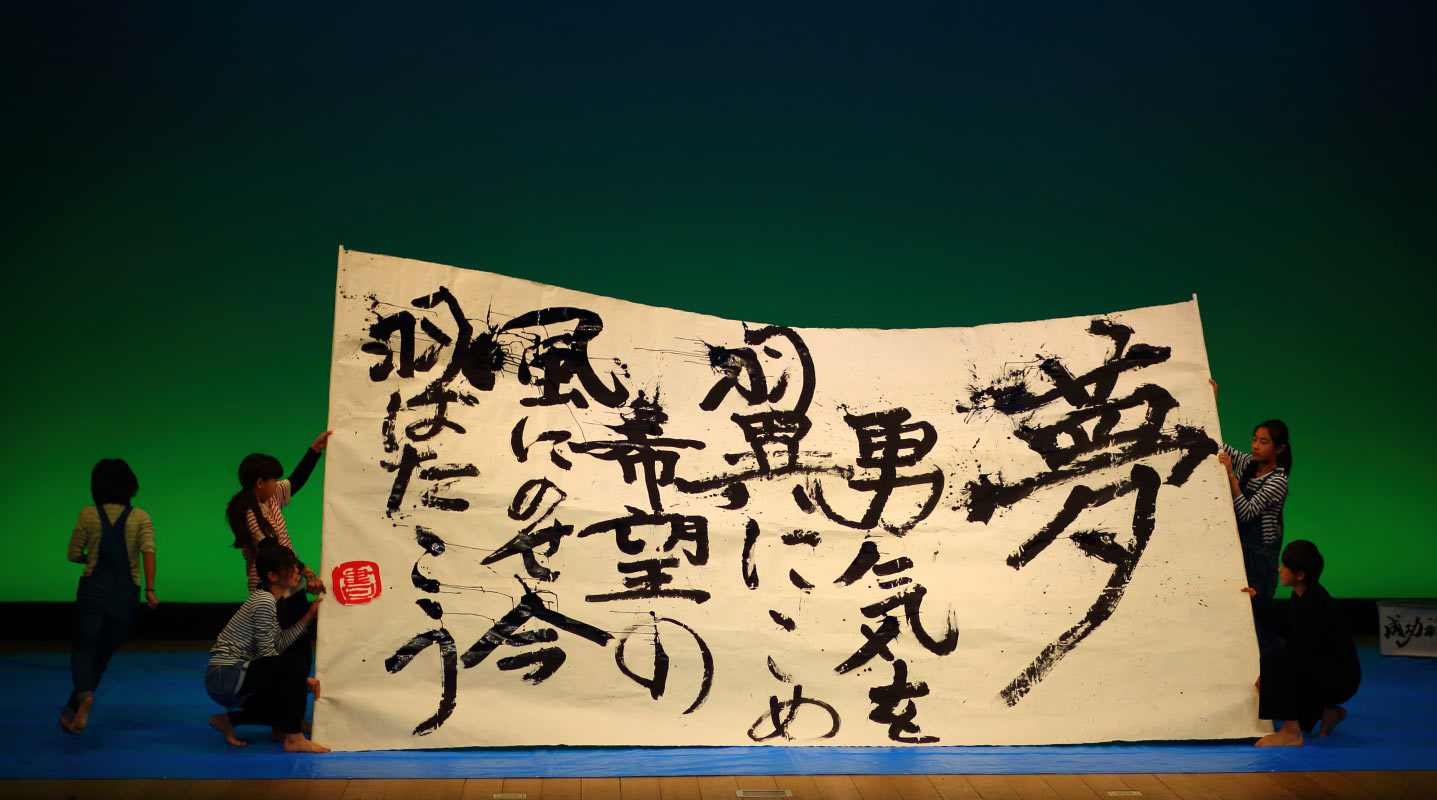 夢
勇気を
翼にこめ
希望の
風にのせ今
羽ばたこう
書
成功